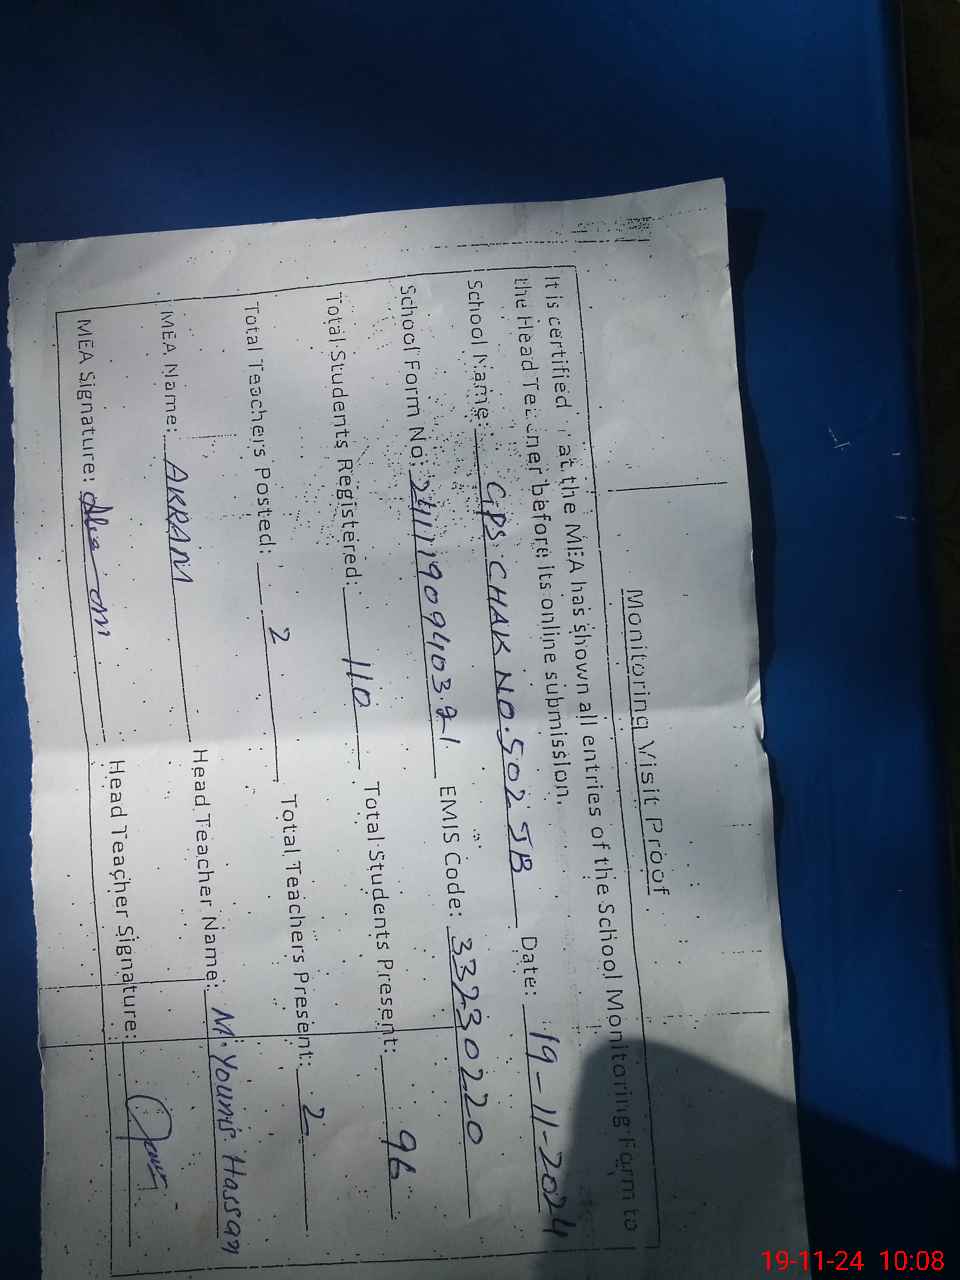 Monitoring Visit Proof
It is certified at the MEA has shown all entries of the School Monitoring Form to
the Head Teacher before its online submission.
School Name: GPS CHAK NO.502 JB Date: 19-11-2024
School Form No: EMIS Code: 33230220
Total Students Registered: 110 Total Students Present: 96
Total Teachers Posted: 2 Total Teachers Present: 2
MEA Name: AKRAM Head Teacher Name: M. Younis Hassan
MEA Signature: Head Teacher Signature:
19-11-24 10:08